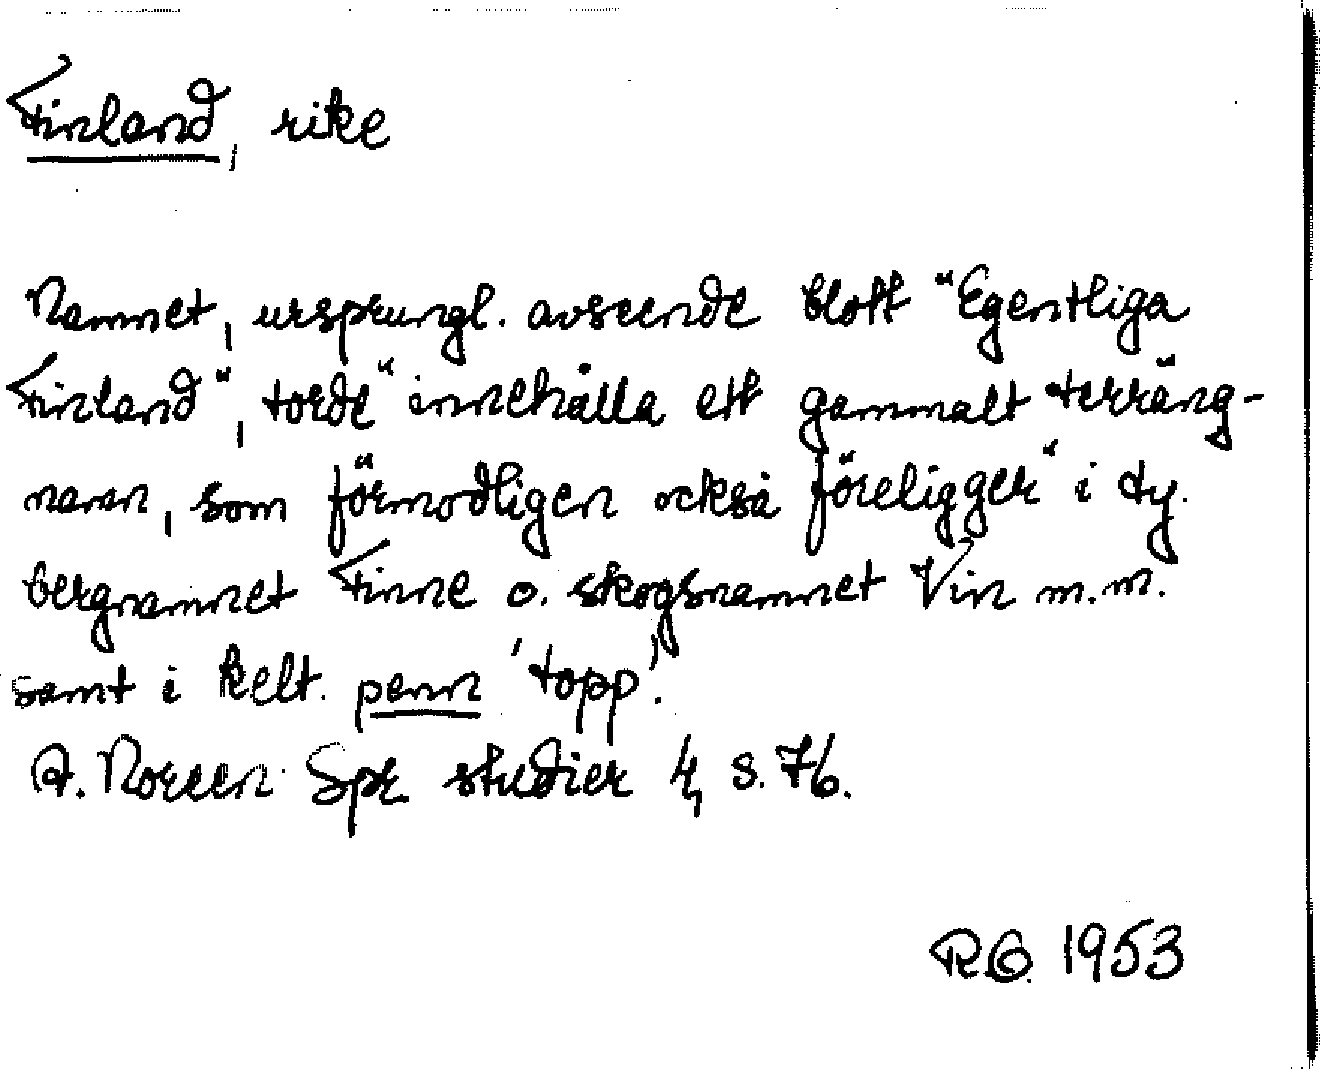 Finland, rike
Namnet, ursprungl. avseende blott "Egentliga
Finland", torde "innehålla ett gammalt terräng-
namn, som förmodligen också föreligger" i ty.
bergnamnet Finne o. skogsnamnet Vin m.m.
samt i kelt. penn 'topp'.
A. Noreen Spr. studier 4, s. 76.
R.G. 1953